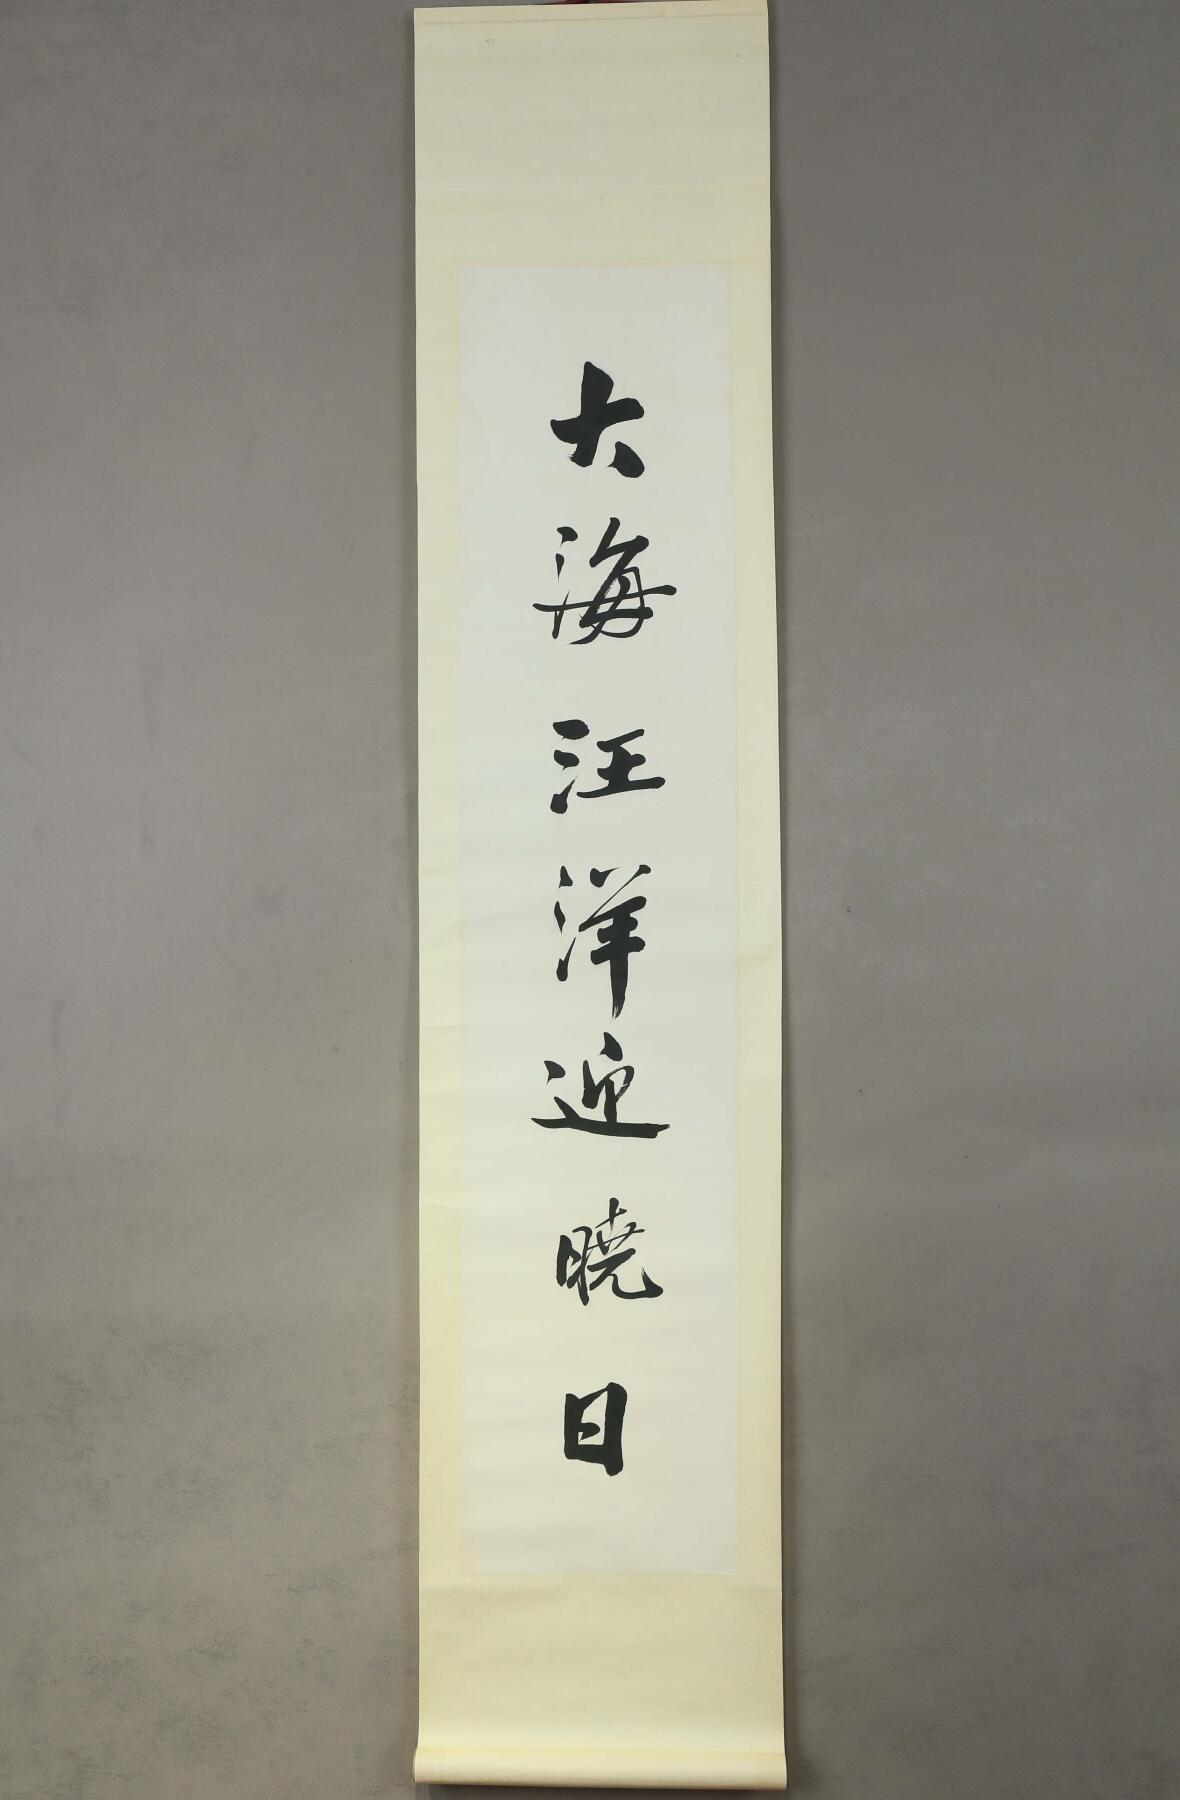 大海汪洋迎暁日